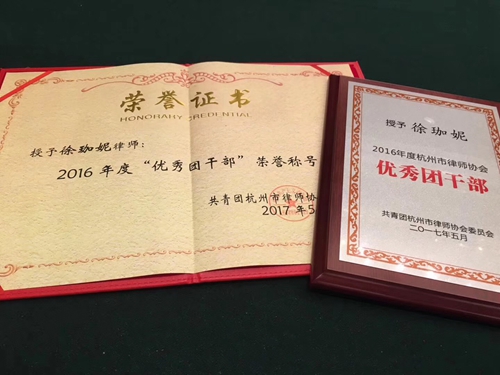 荣誉证书
HONORARY CREDENTIAL
授予徐珈妮律师:
2016 年度“优秀团干部”荣誉称号
共青团杭州市律师协
2017 年5
授予 徐珈妮
2016年度杭州市律师协会
优秀团干部
共青团杭州市律师协会委员会
二〇一七年五月